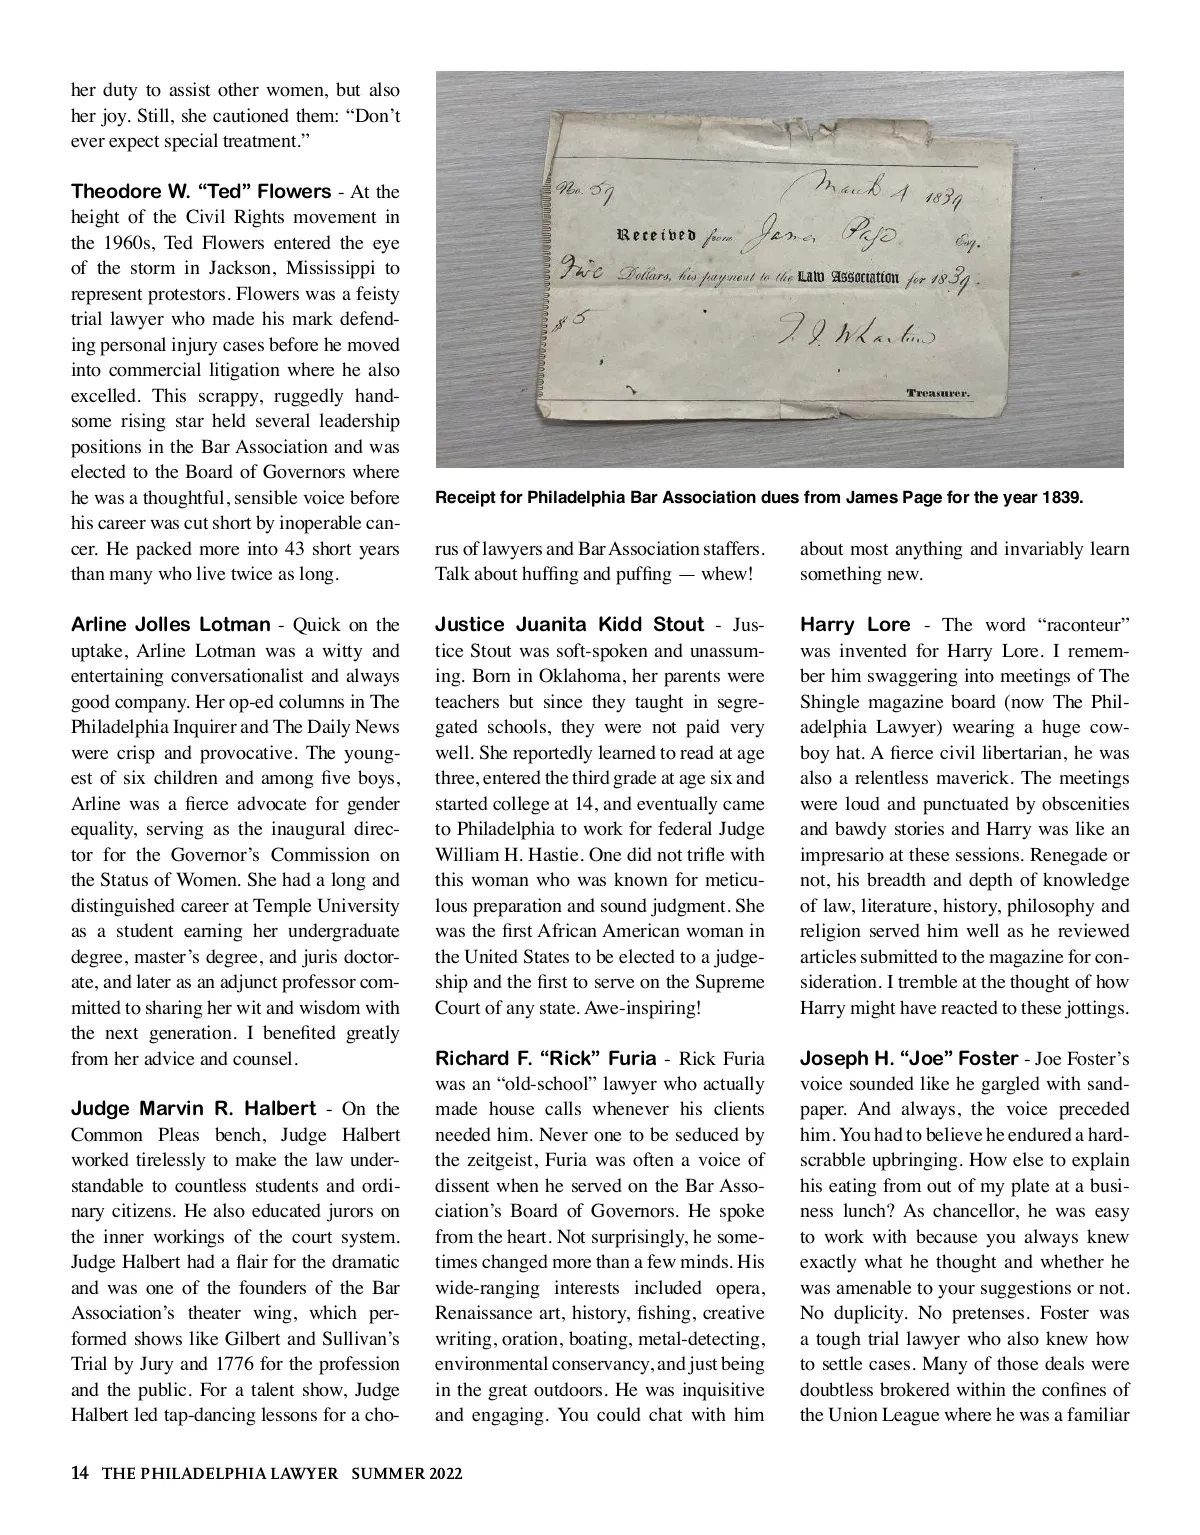 her duty to assist other women, but also
her joy. Still, she cautioned them: “Don’t
ever expect special treatment.”
Theodore W. “Ted” Flowers - At the
height of the Civil Rights movement in
the 1960s, Ted Flowers entered the eye
of the storm in Jackson, Mississippi to
represent protestors. Flowers was a feisty
trial lawyer who made his mark defend-
ing personal injury cases before he moved
into commercial litigation where he also
excelled. This scrappy, ruggedly hand-
some rising star held several leadership
positions in the Bar Association and was
elected to the Board of Governors where
he was a thoughtful, sensible voice before
his career was cut short by inoperable can-
cer. He packed more into 43 short years
than many who live twice as long.
Arline Jolles Lotman - Quick on the
uptake, Arline Lotman was a witty and
entertaining conversationalist and always
good company. Her op-ed columns in The
Philadelphia Inquirer and The Daily News
were crisp and provocative. The young-
est of six children and among five boys,
Arline was a fierce advocate for gender
equality, serving as the inaugural direc-
tor for the Governor’s Commission on
the Status of Women. She had a long and
distinguished career at Temple University
as a student earning her undergraduate
degree, master’s degree, and juris doctor-
ate, and later as an adjunct professor com-
mitted to sharing her wit and wisdom with
the next generation. I benefited greatly
from her advice and counsel.
Judge Marvin R. Halbert - On the
Common Pleas bench, Judge Halbert
worked tirelessly to make the law under-
standable to countless students and ordi-
nary citizens. He also educated jurors on
the inner workings of the court system.
Judge Halbert had a flair for the dramatic
and was one of the founders of the Bar
Association’s theater wing, which per-
formed shows like Gilbert and Sullivan’s
Trial by Jury and 1776 for the profession
and the public. For a talent show, Judge
Halbert led tap-dancing lessons for a cho-
No. 59
March 1 1839
Received from James Page Esq.
Five Dollars, his payment to the Law Association for 1839.
$ 5
T. J. Wharton
Treasurer.
Receipt for Philadelphia Bar Association dues from James Page for the year 1839.
rus of lawyers and Bar Association staffers.
Talk about huffing and puffing — whew!
Justice Juanita Kidd Stout - Jus-
tice Stout was soft-spoken and unassum-
ing. Born in Oklahoma, her parents were
teachers but since they taught in segre-
gated schools, they were not paid very
well. She reportedly learned to read at age
three, entered the third grade at age six and
started college at 14, and eventually came
to Philadelphia to work for federal Judge
William H. Hastie. One did not trifle with
this woman who was known for meticu-
lous preparation and sound judgment. She
was the first African American woman in
the United States to be elected to a judge-
ship and the first to serve on the Supreme
Court of any state. Awe-inspiring!
Richard F. “Rick” Furia - Rick Furia
was an “old-school” lawyer who actually
made house calls whenever his clients
needed him. Never one to be seduced by
the zeitgeist, Furia was often a voice of
dissent when he served on the Bar Asso-
ciation’s Board of Governors. He spoke
from the heart. Not surprisingly, he some-
times changed more than a few minds. His
wide-ranging interests included opera,
Renaissance art, history, fishing, creative
writing, oration, boating, metal-detecting,
environmental conservancy, and just being
in the great outdoors. He was inquisitive
and engaging. You could chat with him
about most anything and invariably learn
something new.
Harry Lore - The word “raconteur”
was invented for Harry Lore. I remem-
ber him swaggering into meetings of The
Shingle magazine board (now The Phil-
adelphia Lawyer) wearing a huge cow-
boy hat. A fierce civil libertarian, he was
also a relentless maverick. The meetings
were loud and punctuated by obscenities
and bawdy stories and Harry was like an
impresario at these sessions. Renegade or
not, his breadth and depth of knowledge
of law, literature, history, philosophy and
religion served him well as he reviewed
articles submitted to the magazine for con-
sideration. I tremble at the thought of how
Harry might have reacted to these jottings.
Joseph H. “Joe” Foster - Joe Foster’s
voice sounded like he gargled with sand-
paper. And always, the voice preceded
him. You had to believe he endured a hard-
scrabble upbringing. How else to explain
his eating from out of my plate at a busi-
ness lunch? As chancellor, he was easy
to work with because you always knew
exactly what he thought and whether he
was amenable to your suggestions or not.
No duplicity. No pretenses. Foster was
a tough trial lawyer who also knew how
to settle cases. Many of those deals were
doubtless brokered within the confines of
the Union League where he was a familiar
14 THE PHILADELPHIA LAWYER SUMMER 2022